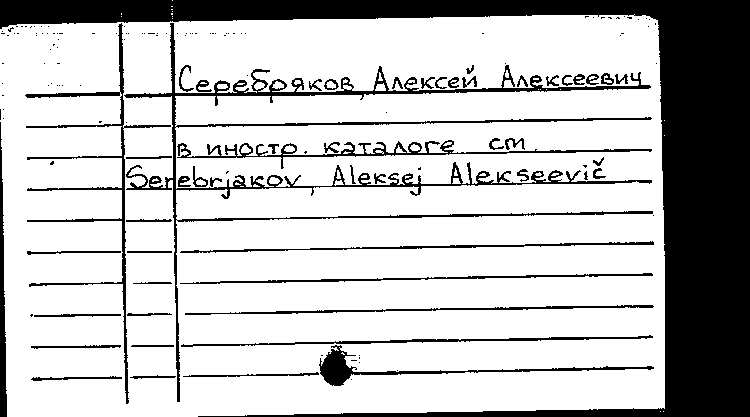 Серебряков, Алексей Алексеевич
в иностр. каталоге см.
Serebrjakov, Aleksej Alekseevič